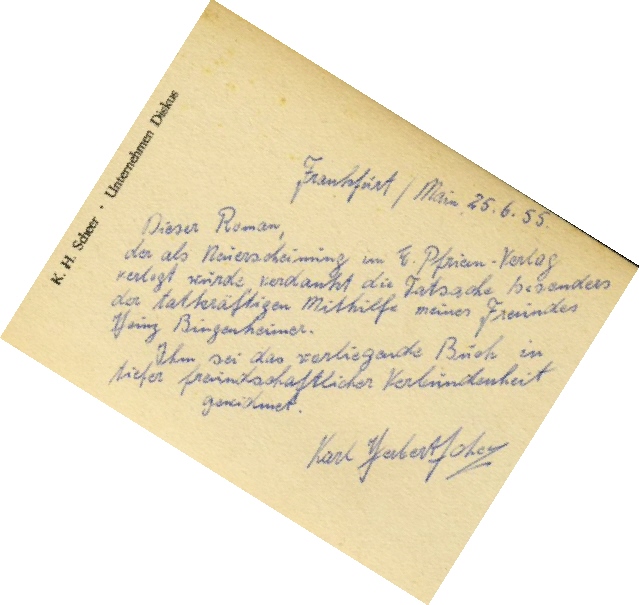 K. H. Scheer · Unternehmen Diskus
Frankfurt / Main, 25.6.55.
Dieser Roman,
der als Neuerscheinung im E. Pfriem-Verlag
verlegt wurde, verdankt die Tatsache besonders
der tatkräftigen Mithilfe meines Freundes
Heinz Bingenheimer.
Ihm sei das vorliegende Buch in
tiefer freundschaftlicher Verbundenheit
gewidmet.
Karl Herbert Scheer